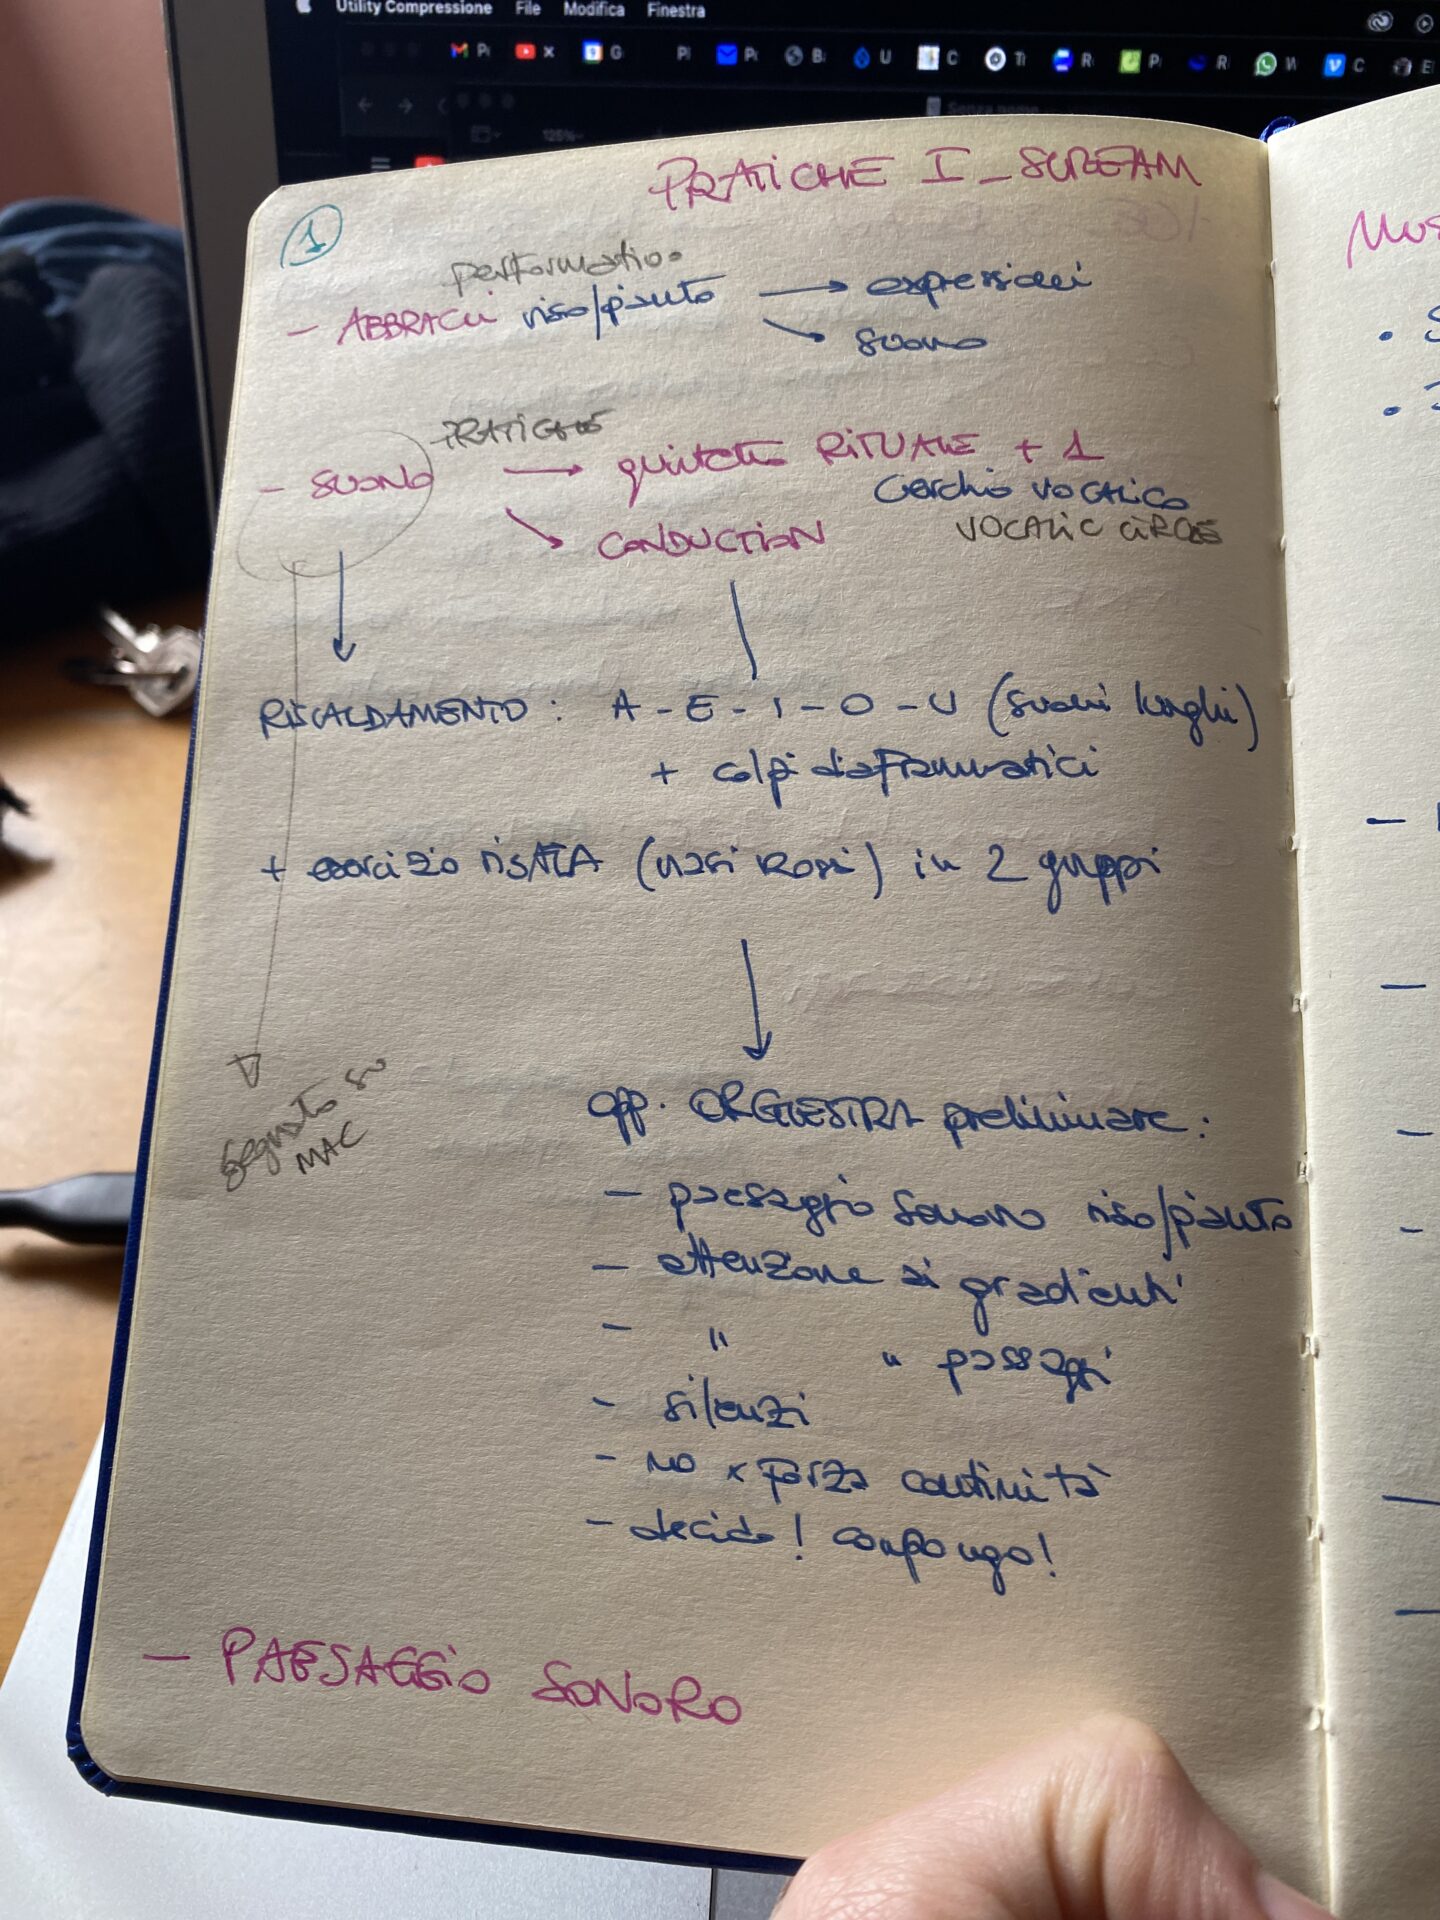 Utility Compressione File Modifica Finestra
125%
PRATICHE I_SCREAM
1
performativo
- ABBRACCI riso/pianto → espressioni
↘ suono
PRATICHE
- SUONO → quintetto RITUALE + 1
Cerchio VOCALICO
↘ CONDUCTION
VOCALIC CIRCLE
RISCALDAMENTO: A - E - I - O - U (suoni lunghi)
+ colpi diaframmatici
+ esercizio risATA (nasi Rossi) in 2 gruppi
segnato su
MAC
opp. ORCHESTRA preliminare:
- paesaggio sonoro riso/pianto
- attenzione ai gradienti
- " " passaggi
- silenzi
- no x forza continuità
- decido! compongo!
- PAESAGGIO SONORO